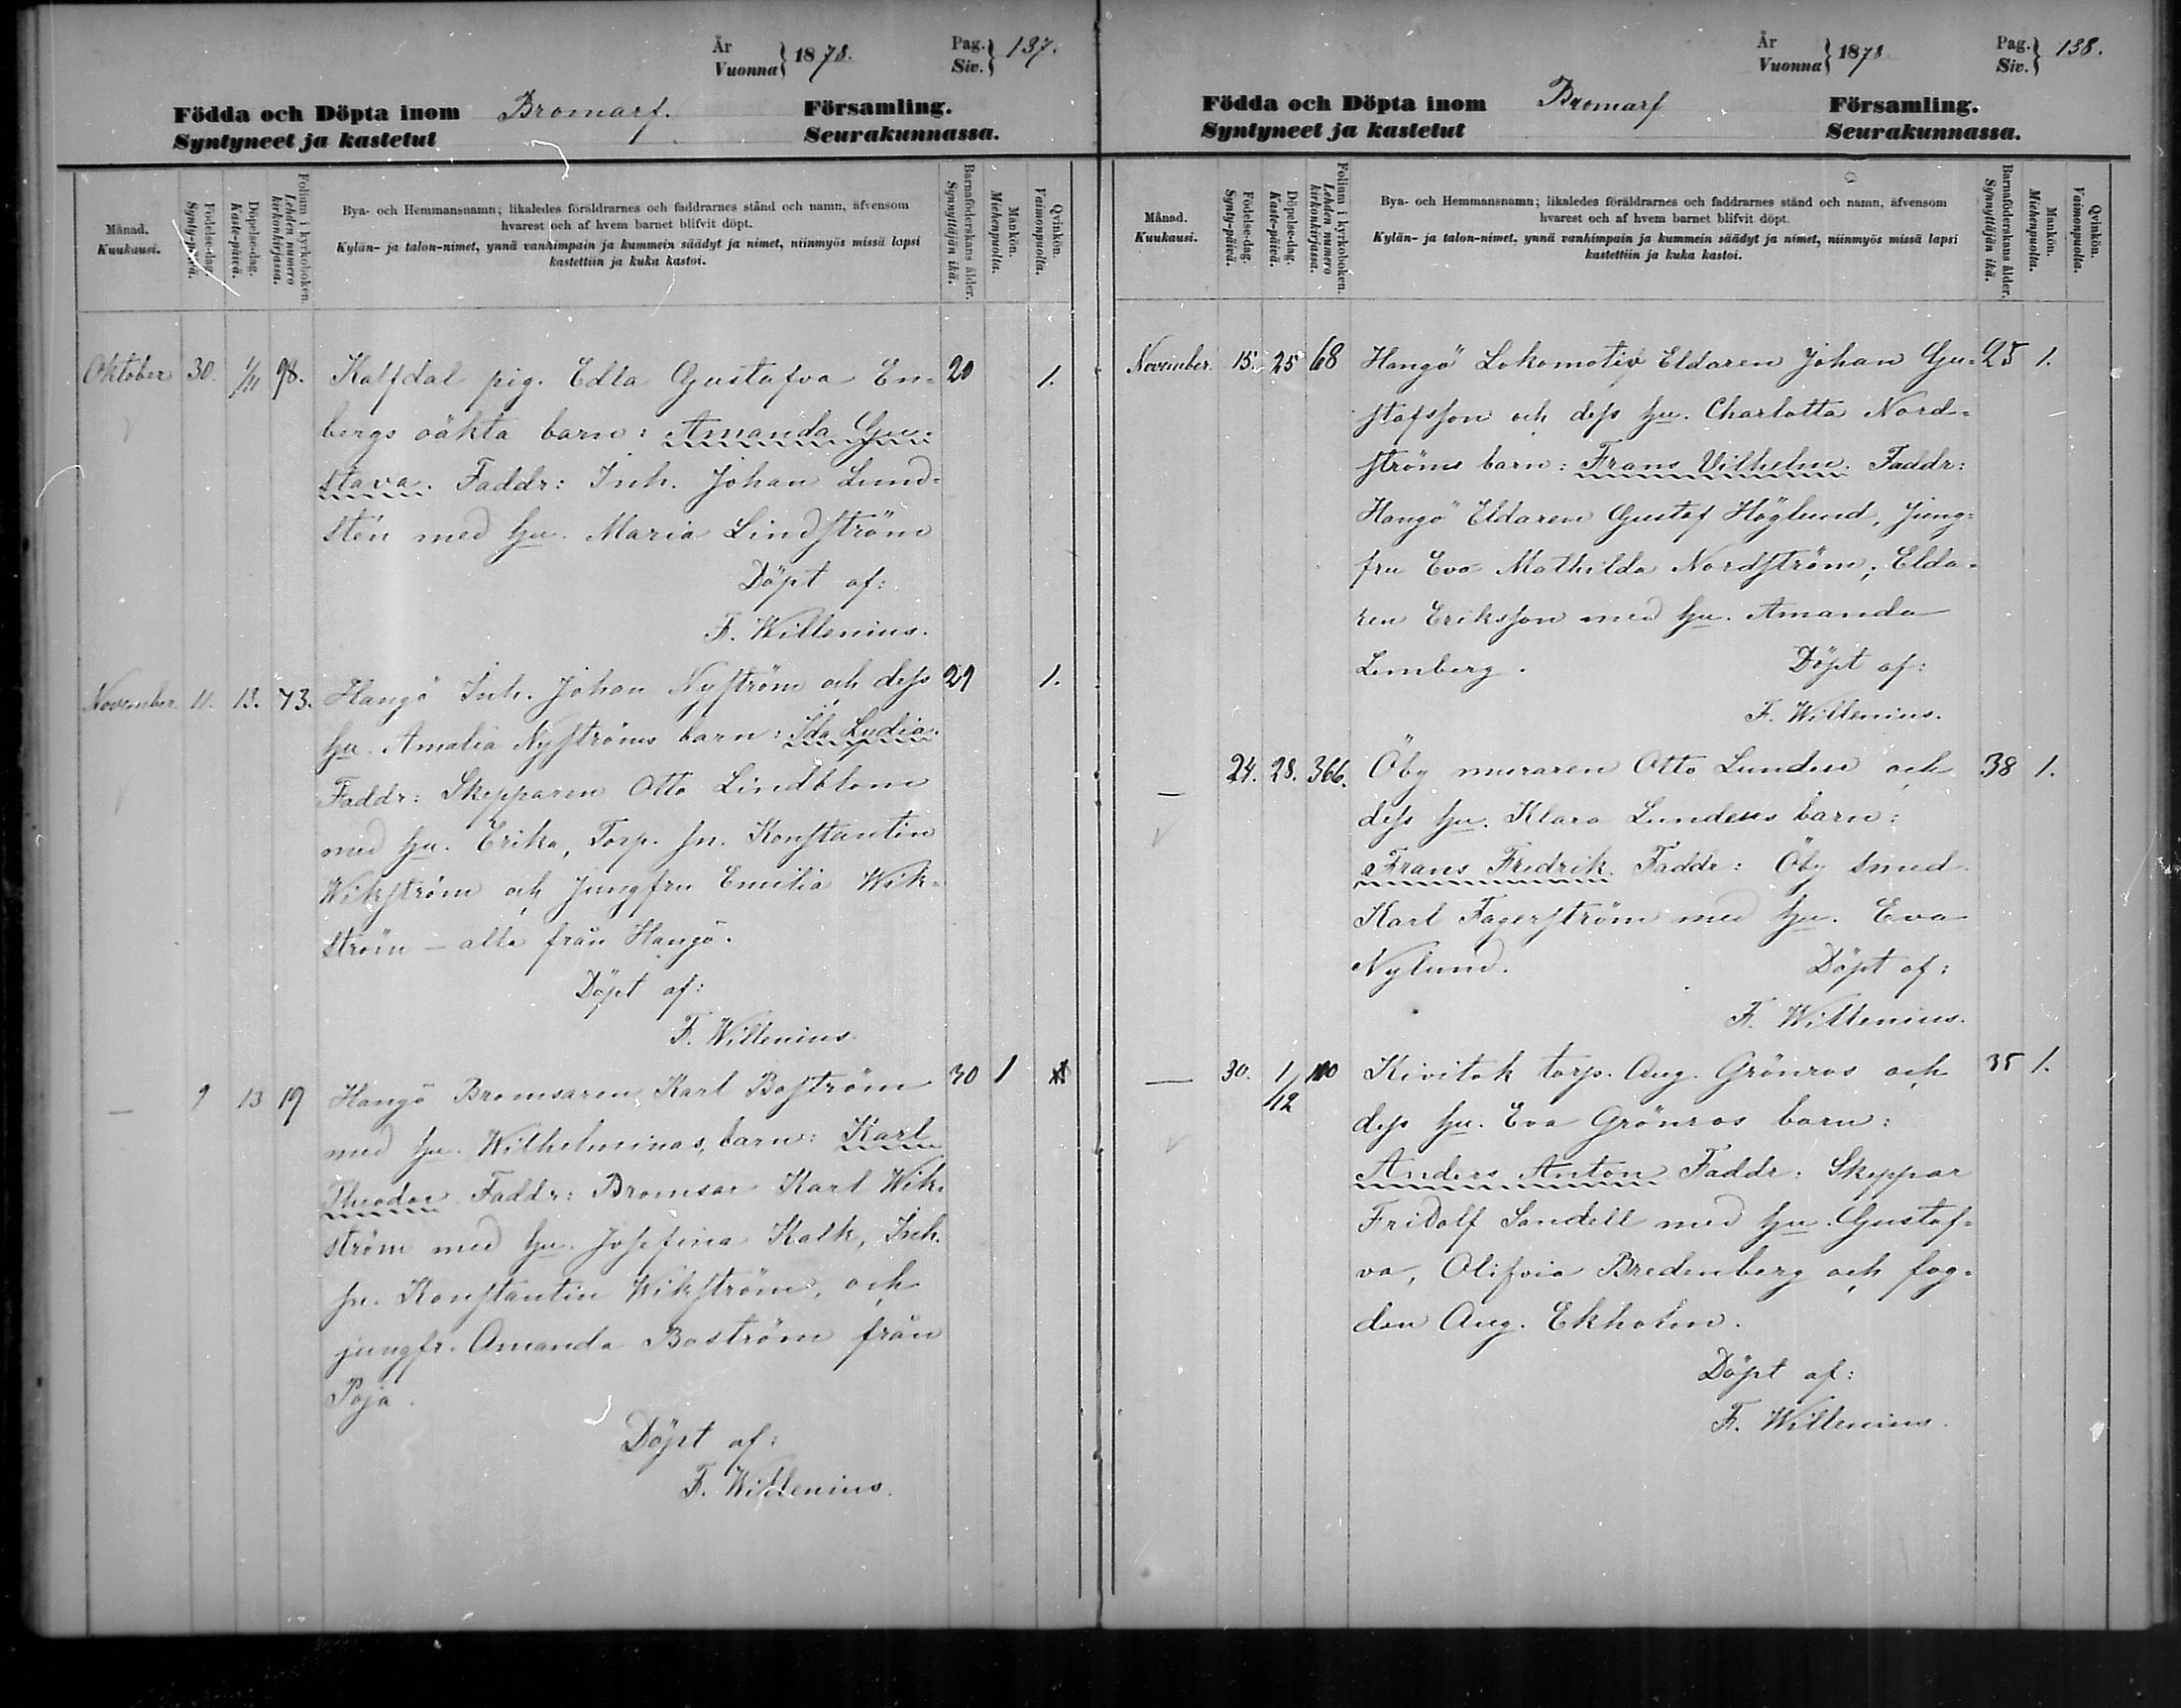 År
Vuonna } 1878.
Pag.
Siv. } 137.
Födda och Döpta inom Bromarf. Församling.
Syntyneet ja kastetut Seurakunnassa.
Månad.
Kuukausi.
Födelse-dag.
Synty-päivä.
Döpelse-dag.
Kaste-päivä.
Folium i kyrkoboken.
Lehden numero kirkonkirjassa.
Bya- och Hemmansnamn; likaledes föräldrarnes och faddrarnes stånd och namn, äfvensom
hvarest och af hvem barnet blifvit döpt.
Kylän- ja talon-nimet, ynnä vanhimpain ja kummein säädyt ja nimet, niinmyös missä lapsi
kastettiin ja kuka kastoi.
Barnaföderskans ålder.
Synnyttäjän ikä.
Mankön.
Miehenpuolta.
Qvinkön.
Vaimonpuolta.
Oktober 30. 1/11 98. Kalfdal pig. Edla Gustafva En= 20 1.
bergs oäkta barn: Amanda Gu=
stava. Faddr: Inh. Johan Lund=
stén med hu. Maria Lindström
Döpt af:
F. Willenius.
November. 11. 13. 73. Hangö Inh. Johan Nyström och dess 29 1.
hu. Amalia Nyströms barn: Ida Lydia.
Faddr: Skepparen Otto Lindblom
med hu. Erika, Torp. sn. Konstantin
Wikström och Jungfru Emilia Wik=
ström – alla från Hangö.
Döpt af:
F. Willenius.
— 9 13 19 Hangö Bromsaren Karl Boström 30 1
med hu. Wilhelminas, barn: Karl
Theodor Faddr: Bromsar Karl Wik=
ström med hu. Josefina Kalk, Inh.
sn. Konstantin Wikström, och
jungfr. Amanda Boström från
Poja.
Döpt af:
F. Willenius.
År
Vuonna } 1878
Pag.
Siv. } 138.
Födda och Döpta inom Bromarf Församling.
Syntyneet ja kastetut Seurakunnassa.
Månad.
Kuukausi.
Födelse-dag.
Synty-päivä.
Döpelse-dag.
Kaste-päivä.
Folium i kyrkoboken.
Lehden numero kirkonkirjassa.
Bya- och Hemmansnamn; likaledes föräldrarnes och faddrarnes stånd och namn, äfvensom
hvarest och af hvem barnet blifvit döpt.
Kylän- ja talon-nimet, ynnä vanhimpain ja kummein säädyt ja nimet, niinmyös missä lapsi
kastettiin ja kuka kastoi.
Barnaföderskans ålder.
Synnyttäjän ikä.
Mankön.
Miehenpuolta.
Qvinkön.
Vaimonpuolta.
November. 15. 25 68 Hangö Lokomotiv Eldaren Johan Gu= 25 1.
stafsson och dess hu. Charlotta Nord=
ströms barn: Frans Vilhelm. Faddr:
Hangö Eldaren Gustaf Höglund, Jung=
fru Eva Mathilda Nordström; Elda=
ren Eriksson med hu. Amanda
Lemberg. Döpt af:
F. Willenius.
— 24. 28. 366. Öby muraren Otto Lunden och 38 1.
dess hu. Klara Lundens barn:
Frans Fredrik. Faddr: Öby smed
Karl Fagerström med hu. Eva
Nylund. Döpt af:
F. Willenius.
— 30. 1/12 Kivitok torp. Aug. Grönros och 35 1.
dess hu. Eva Grönros barn:
Anders Anton Faddr: Skeppar
Fridolf Sandell med hu. Gustaf=
va, Olifvia Bredenberg och fog=
den Aug. Ekholm.
Döpt af:
F. Willenius.